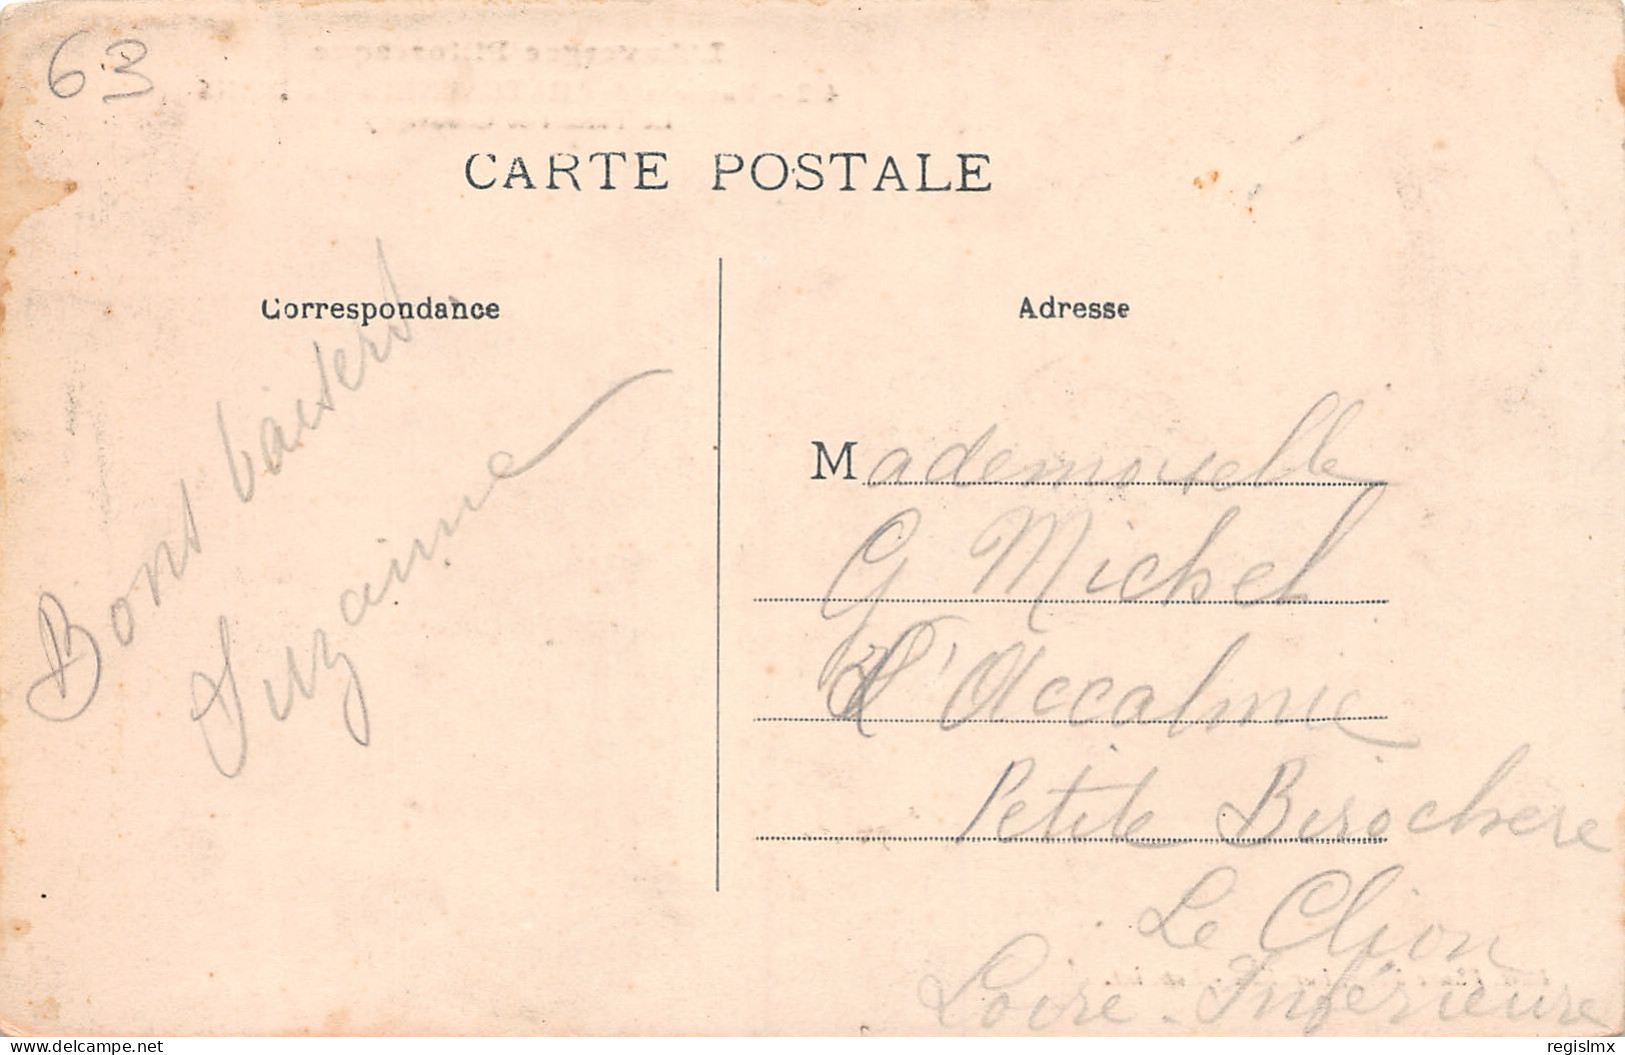 63
CARTE POSTALE
Correspondance
Adresse
Bons baisers
Suzanne
Mademoiselle
G Michel
L'Accalmie
Petite Birochere
Le Clion
Loire-Inférieure
delcampe.net
regislmx